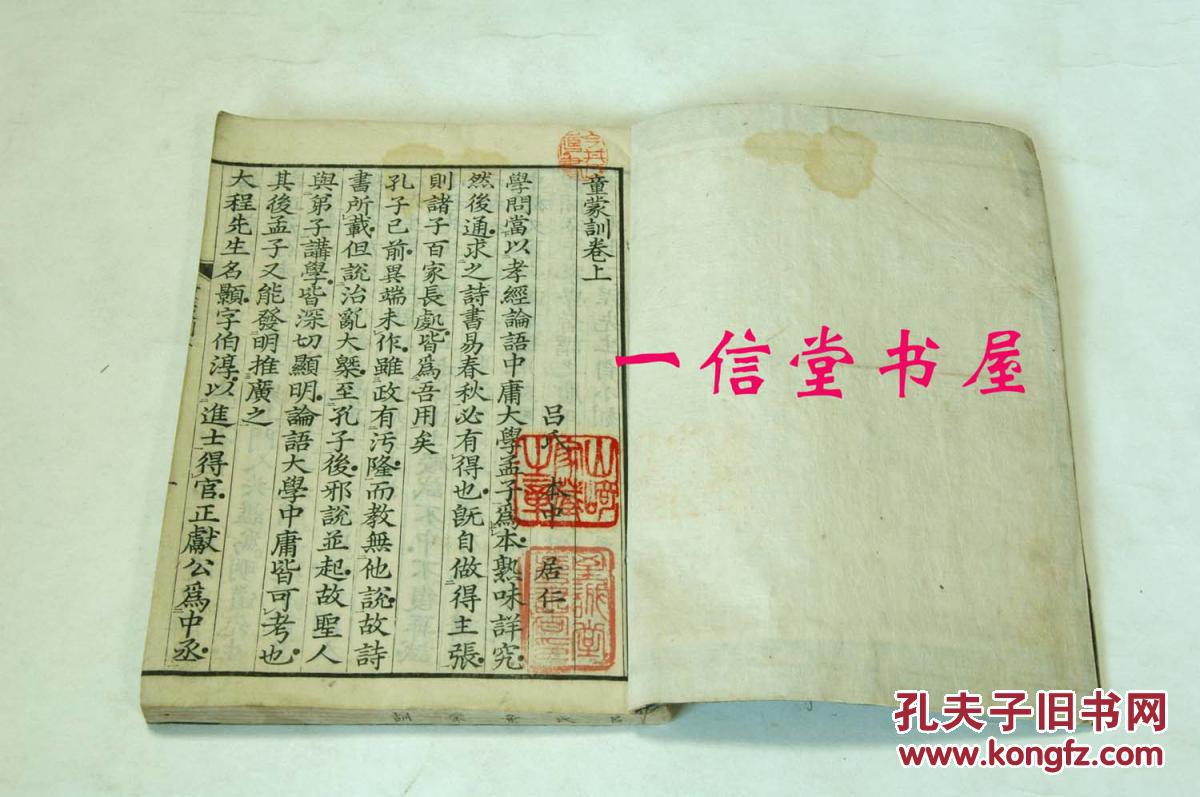 童蒙訓卷上
呂氏 本中 居仁
學問當以孝經論語中庸大學孟子爲本熟味詳究
然後通求之詩書易春秋必有得也旣自做得主張
則諸子百家長處皆爲吾用矣
孔子已前異端未作雖政有汚隆而教無他說故詩
書所載但說治亂大槩至孔子後邪說並起故聖人
與弟子講學皆深切顯明論語大學中庸皆可考也
其後孟子又能發明推廣之
大程先生名顥字伯淳以進士得官正獻公爲中丞
至誠堂
一信堂书屋
孔夫子旧书网
www.kongfz.com